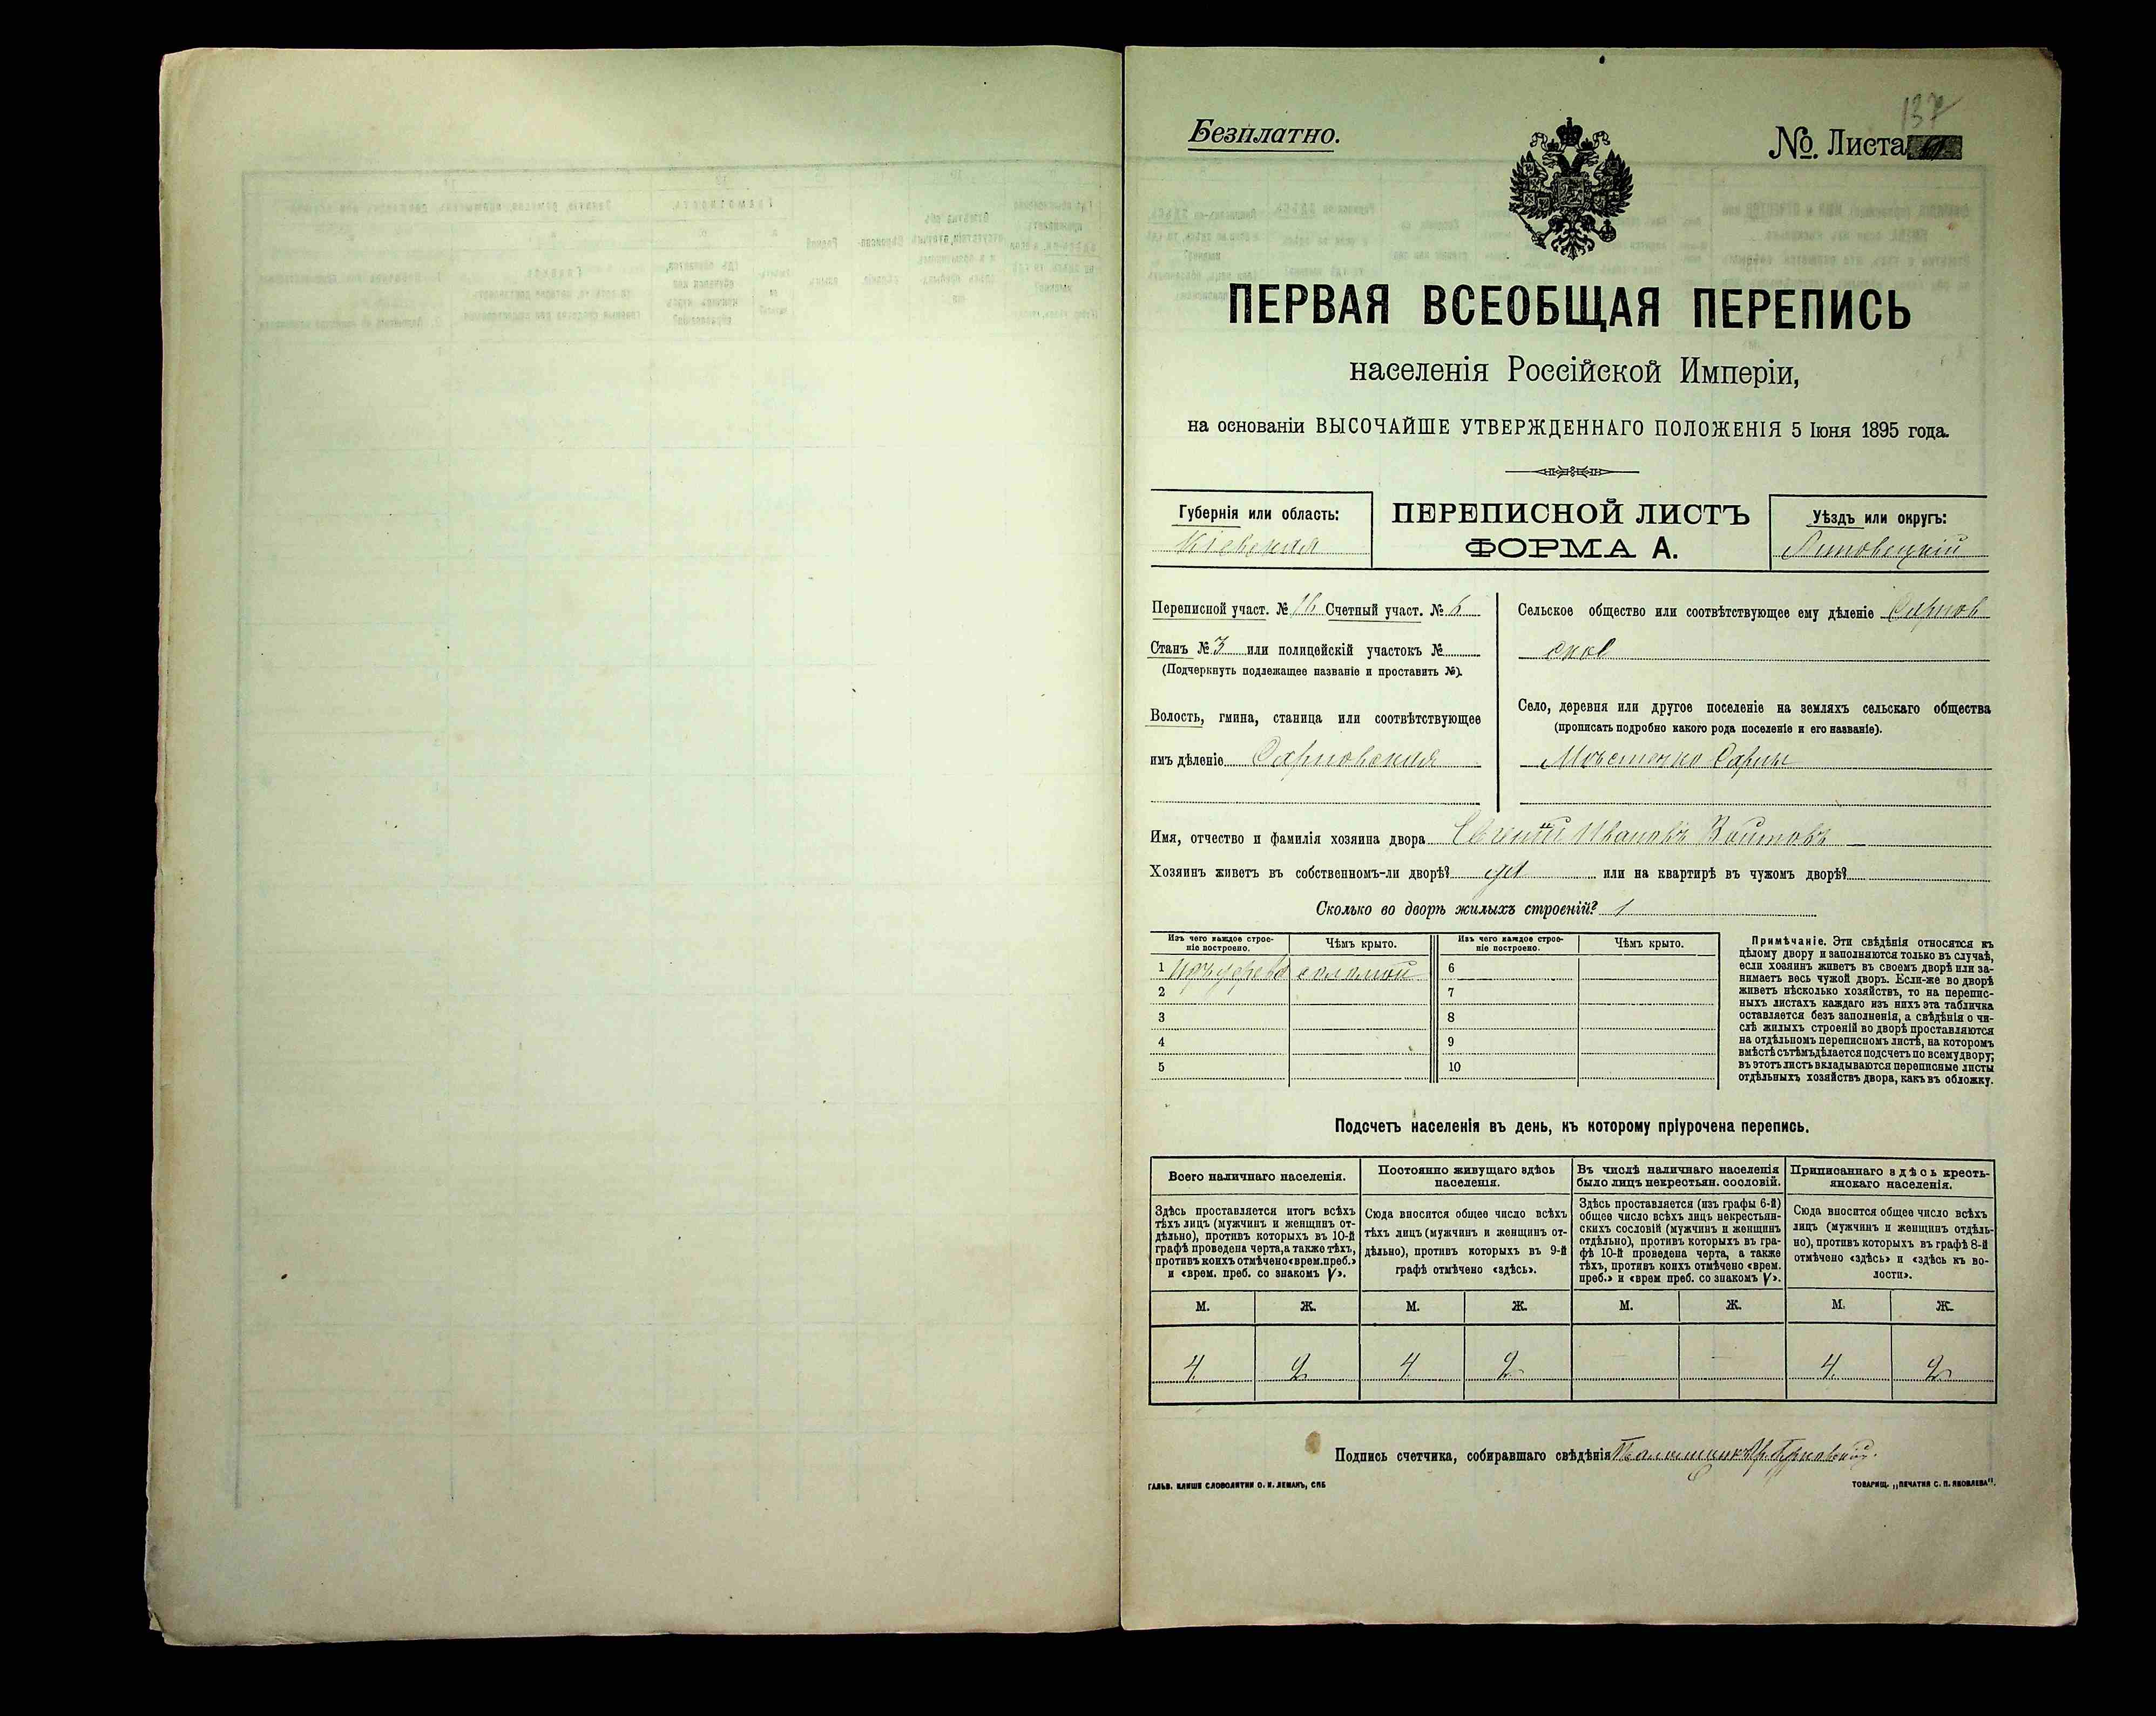 137
Безплатно.
№. Листа
ПЕРВАЯ ВСЕОБЩАЯ ПЕРЕПИСЬ
населенія Россійской Имперіи,
на основаніи ВЫСОЧАЙШЕ УТВЕРЖДЕННАГО ПОЛОЖЕНІЯ 5 Іюня 1895 года.
Губернія или область:
Кіевская
ПЕРЕПИСНОЙ ЛИСТЪ
ФОРМА А.
Уѣздъ или округъ:
Липовецкій
Переписной участ. № 16 Счетный участ. № 6
Станъ № 3 или полицейскій участокъ №
(Подчеркнуть подлежащее названіе и проставить №).
Волость, гмина, станица или соотвѣтствующее
имъ дѣленіе Сарновская
Сельское общество или соотвѣтствующее ему дѣленіе Сарнов
ское
Село, деревня или другое поселеніе на земляхъ сельскаго общества
(прописать подробно какого рода поселеніе и его названіе).
Мѣстечко Сарны
Имя, отчество и фамилія хозяина двора Евгений Ивановъ Войтовъ
Хозяинъ живетъ въ собственномъ-ли дворѣ? да или на квартирѣ въ чужомъ дворѣ?
Сколько во дворѣ жилыхъ строеній? 1
Изъ чего каждое строе-
ніе построено.
Чѣмъ крыто.
Изъ чего каждое строе-
ніе построено.
Чѣмъ крыто.
1 Изъ дерева соломой 6
2 7
3 8
4 9
5 10
Примѣчаніе. Эти свѣдѣнія относятся къ
цѣлому двору и заполняются только въ случаѣ,
если хозяинъ живетъ въ своемъ дворѣ или за-
нимаетъ весь чужой дворъ. Если-же во дворѣ
живетъ нѣсколько хозяйствъ, то на перепис-
ныхъ листахъ каждаго изъ нихъ эта табличка
оставляется безъ заполненія, а свѣдѣнія о чи-
слѣ жилыхъ строеній во дворѣ проставляются
на отдѣльномъ переписномъ листѣ, на которомъ
вмѣстѣ съ тѣмъ дѣлается подсчетъ по всему двору;
въ этотъ листъ вкладываются переписные листы
отдѣльныхъ хозяйствъ двора, какъ въ обложку.
Подсчетъ населенія въ день, къ которому пріурочена перепись.
Всего наличнаго населенія.
Здѣсь проставляется итогъ всѣхъ
тѣхъ лицъ (мужчинъ и женщинъ от-
дѣльно), противъ которыхъ въ 10-й
графѣ проведена черта, а также тѣхъ,
противъ коихъ отмѣчено «врем. преб.»
и «врем. преб. со знакомъ V».
Постоянно живущаго здѣсь
населенія.
Сюда вносится общее число всѣхъ
тѣхъ лицъ (мужчинъ и женщинъ от-
дѣльно), противъ которыхъ въ 9-й
графѣ отмѣчено «здѣсь».
Въ числѣ наличнаго населенія
было лицъ некрестьян. сословій.
Здѣсь проставляется (изъ графы 6-й)
общее число всѣхъ лицъ некрестьян-
скихъ сословій (мужчинъ и женщинъ
отдѣльно), противъ которыхъ въ гра-
фѣ 10-й проведена черта, а также
тѣхъ, противъ коихъ отмѣчено «врем.
преб.» и «врем. преб. со знакомъ V».
Приписаннаго здѣсь кресть-
янскаго населенія.
Сюда вносится общее число всѣхъ
лицъ (мужчинъ и женщинъ отдѣль-
но), противъ которыхъ въ графѣ 8-й
отмѣчено «здѣсь» и «здѣсь къ во-
лости».
М. Ж. М. Ж. М. Ж. М. Ж.
4 2 4 2 — — 4 2
Подпись счетчика, собиравшаго свѣдѣнія
ГАЛЬВ. КЛИШЕ СЛОВОЛИТНИ О. И. ЛЕМАНЪ, СПБ
ТОВАРИЩ. „ПЕЧАТНЯ С. П. ЯКОВЛЕВА".